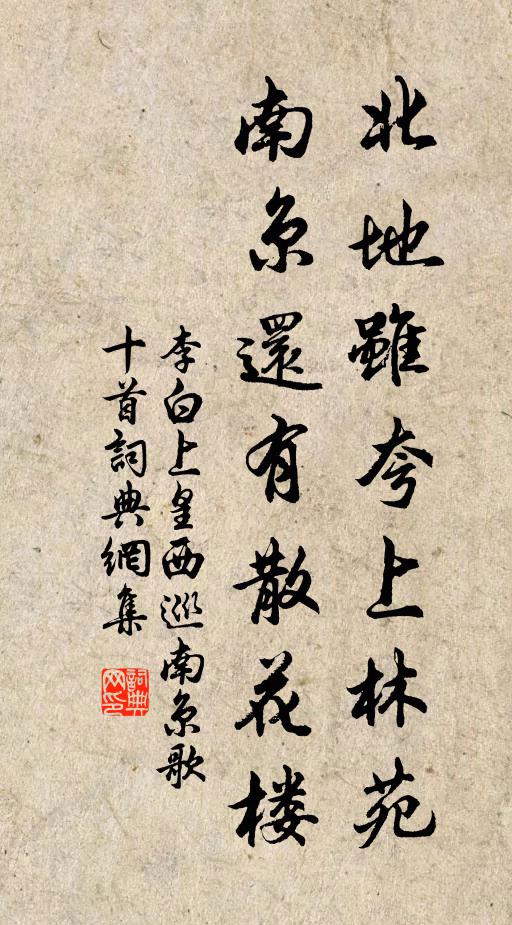 北地雖夸上林苑
南京還有散花楼
李白上皇西巡南京歌
十首詞典網集
詞典
网印